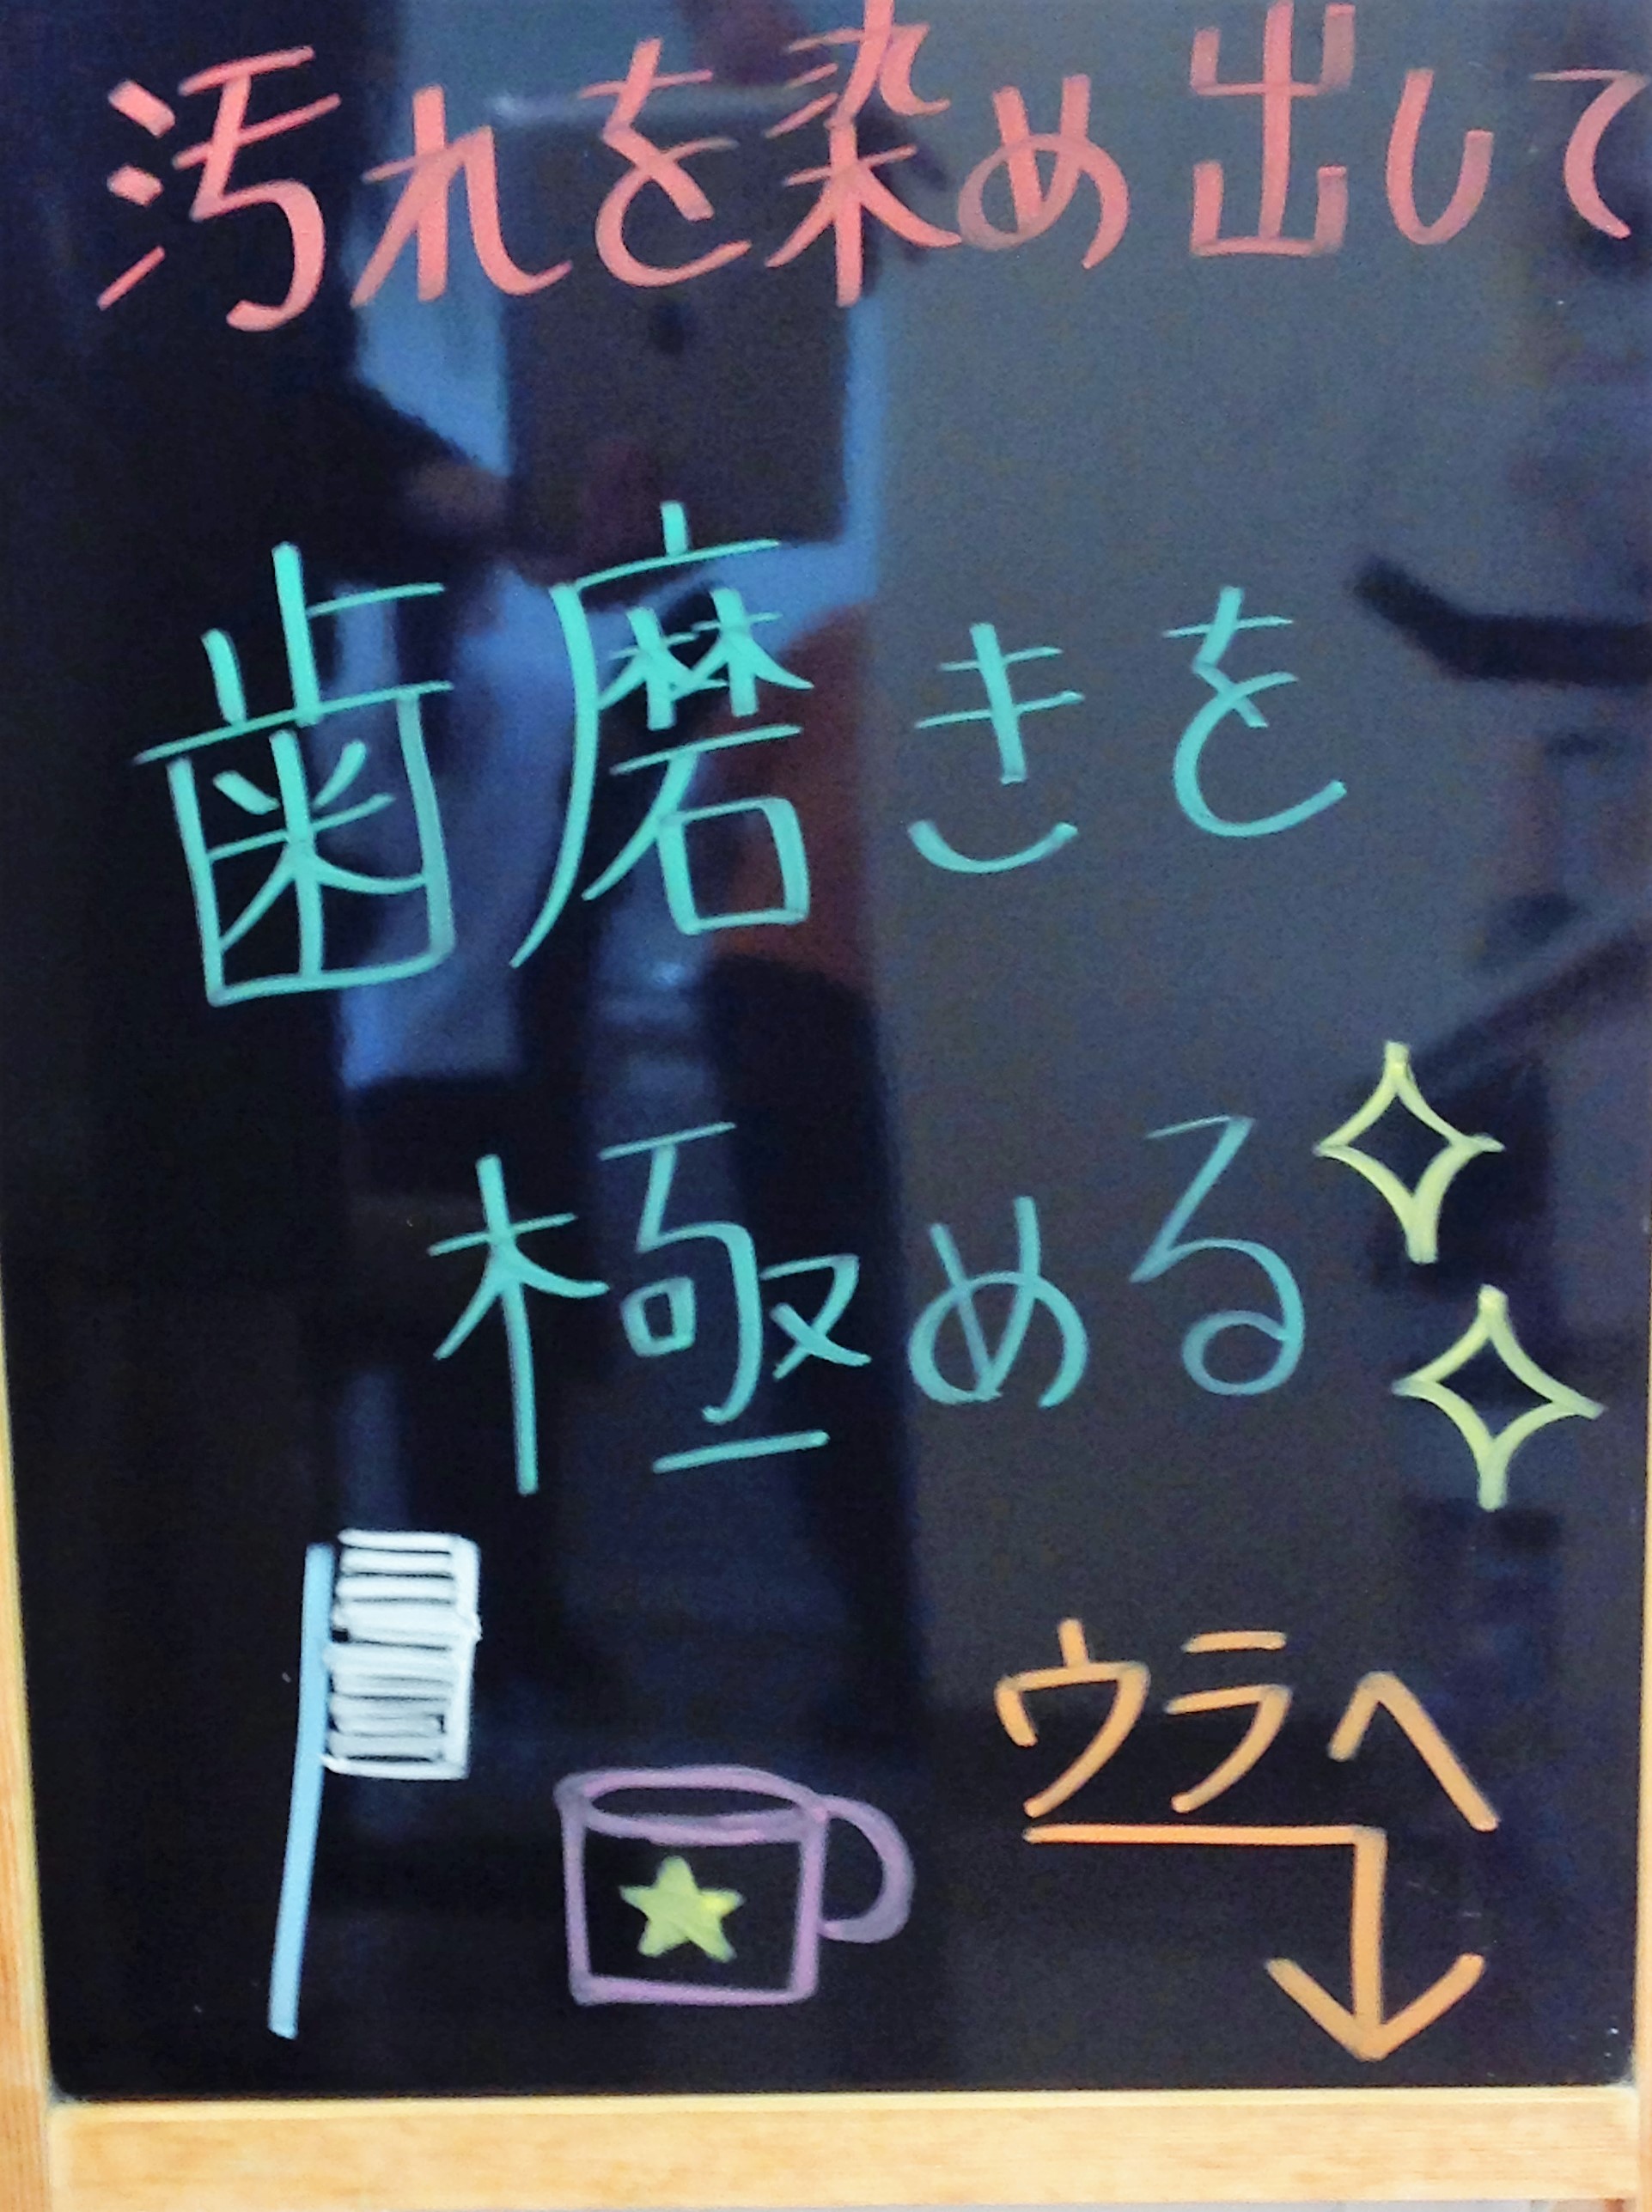 汚れを染め出して
歯磨きを
極める
ウラへ